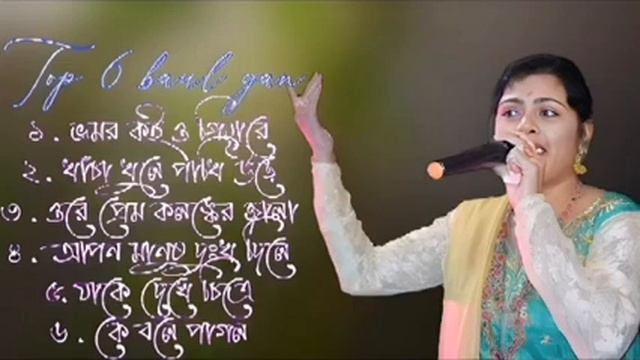 Top 6 baul gan
১. ভ্রমর কই ও গিয়ারে
২. খাঁচা খুলে পাখি উড়ে
৩. ওরে প্রেম কলঙ্কের জ্বালা
৪. আপন মানুষ দুঃখ দিলে
৫. যাকে দেখি চিত্রে
৬. কে বলে পাগল